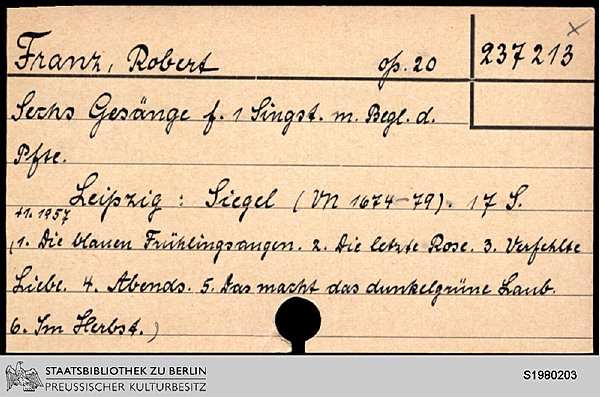 Franz, Robert op. 20 237213
Sechs Gesänge f. 1 Singst. m. Begl. d.
Pfte.
Leipzig : Siegel (VN 1674-79). 17 S.
41.1957
(1. Die blauen Frühlingsaugen. 2. Die letzte Rose. 3. Verfehlte
Liebe. 4. Abends. 5. Das macht das dunkelgrüne Laub.
6. Im Herbst.)
STAATSBIBLIOTHEK ZU BERLIN
PREUSSISCHER KULTURBESITZ
S1980203